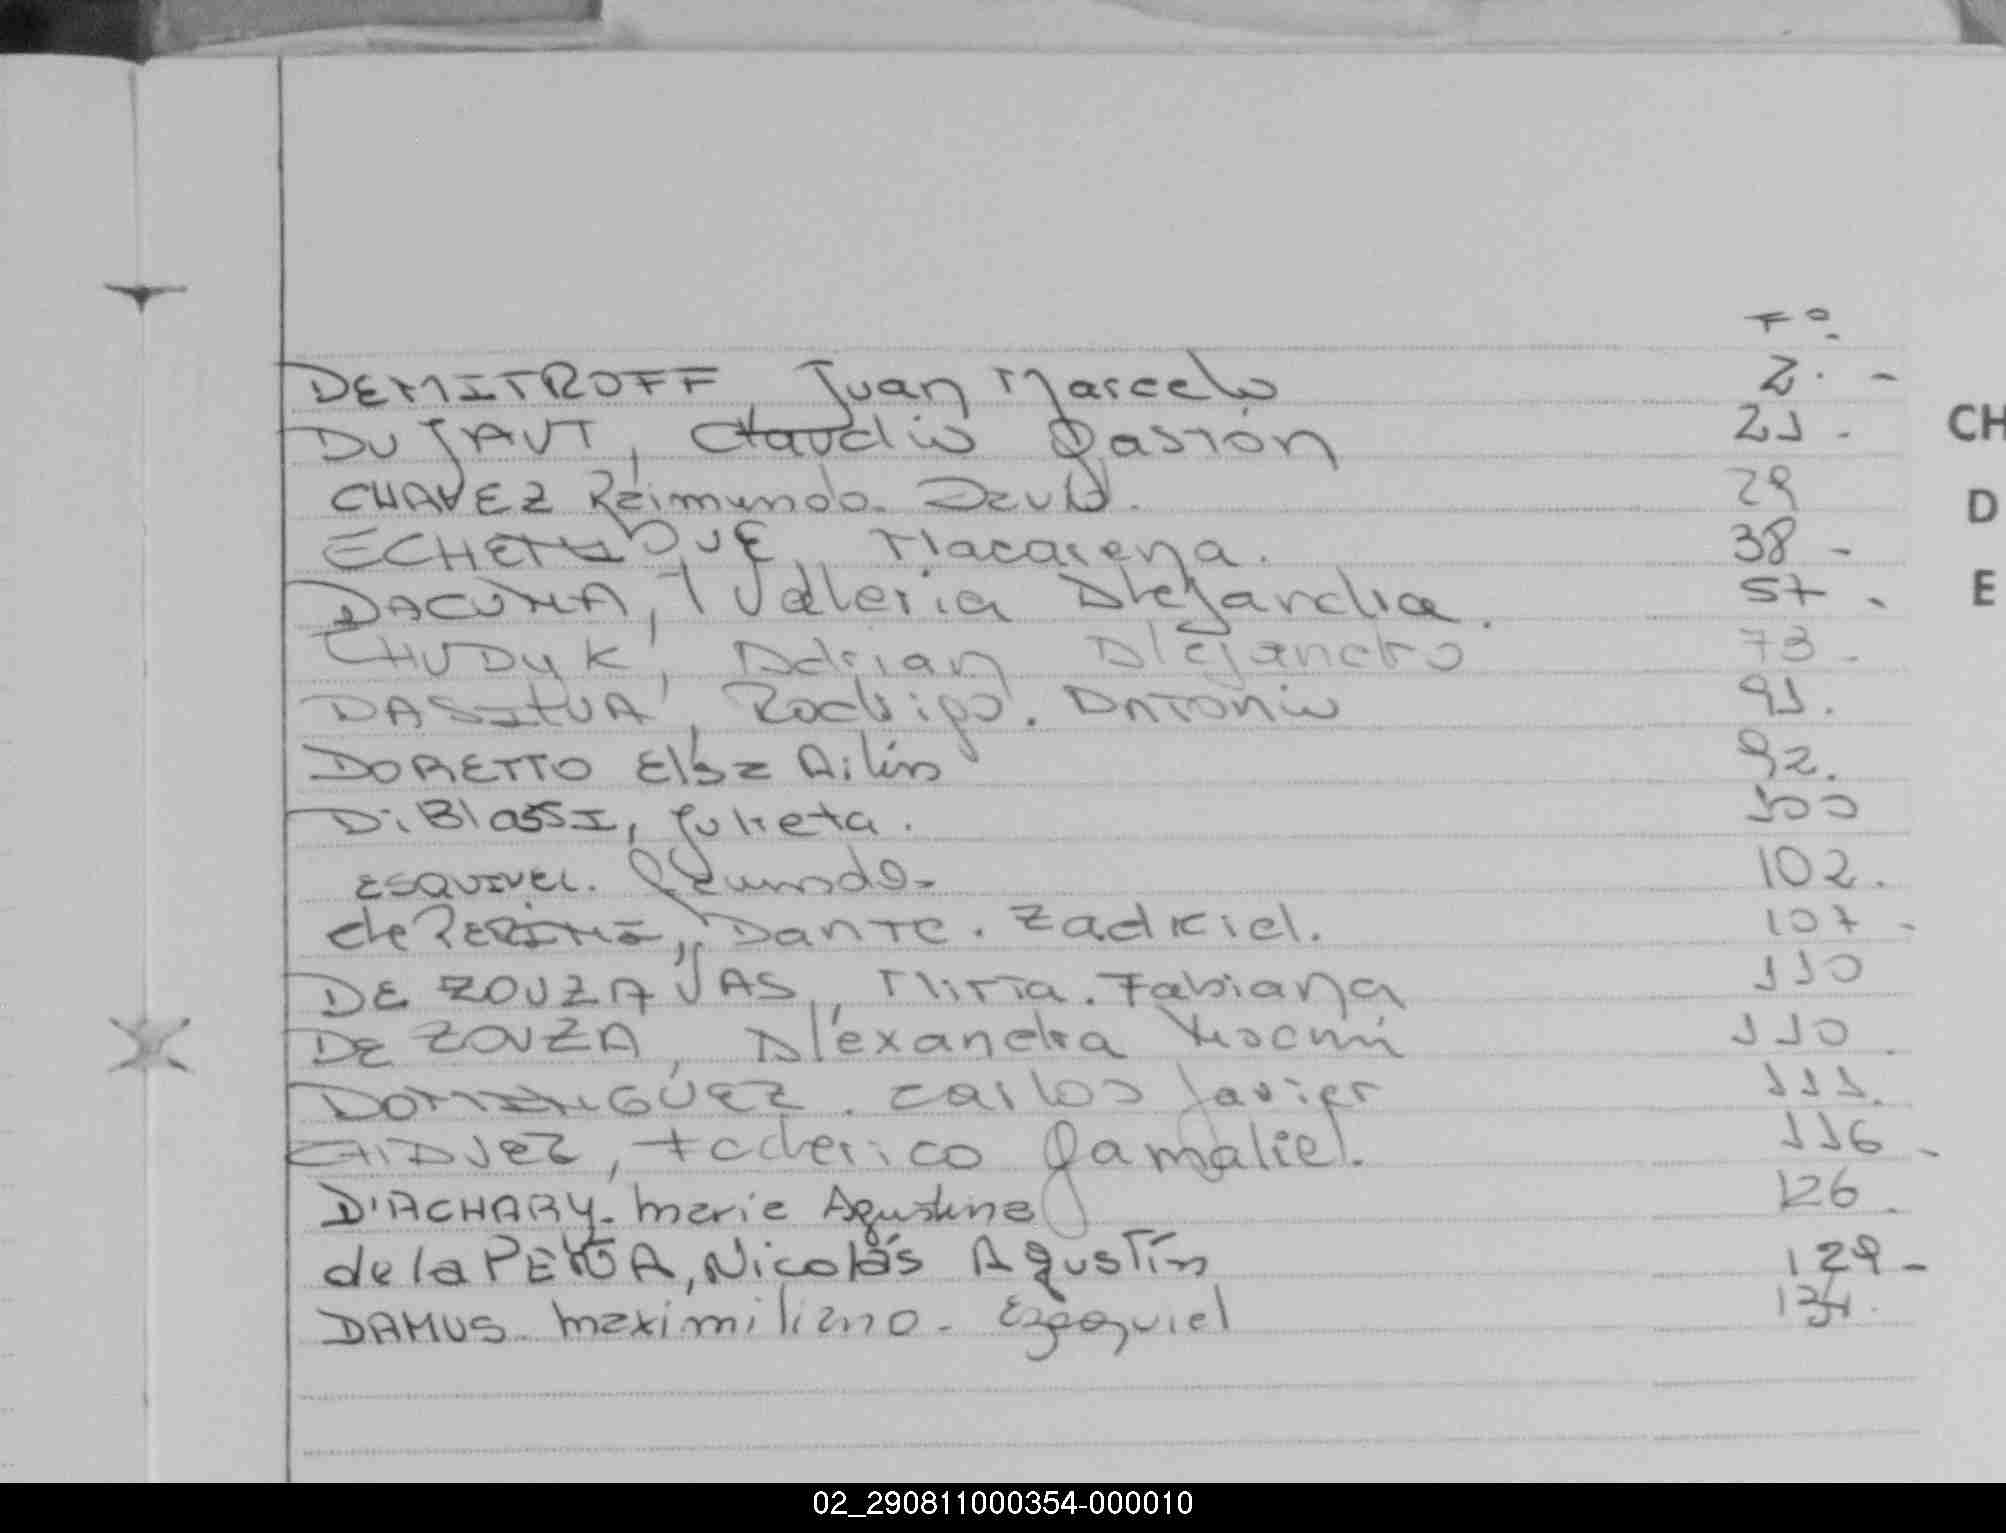 Fº
DEMITROFF, Juan Marcelo 2. -
DUJAUT, Claudio Gastón 21. CH
CHAVEZ Raimundo. David. 29 D
ECHENIQUE Macarena. 38 -
DACUNHA, Valeria Alejandra. 57. E
CHUDYK, Adrian Alejandro 73.
DASILVA, Rodrigo. Antonio 91.
DORETTO Elsa Ailín 92.
DiBlassi, Julieta. 100
ESQUIVEL. Facundo- 102.
de Dante. Zadkiel. 107 -
DE ZOUZA VAS, Mirta. Fabiana 110
DE ZOUZA, Alexandra Noemi 110.
DOMINGUEZ. Carlos Javier 111.
Federico Gamaliel. 116 -
D'ACHARY- Maria Agustina 126.
de la PEÑA, Nicolás Agustín 129-
DAMUS Maximiliano- Ezequiel 134.
02_290811000354-000010